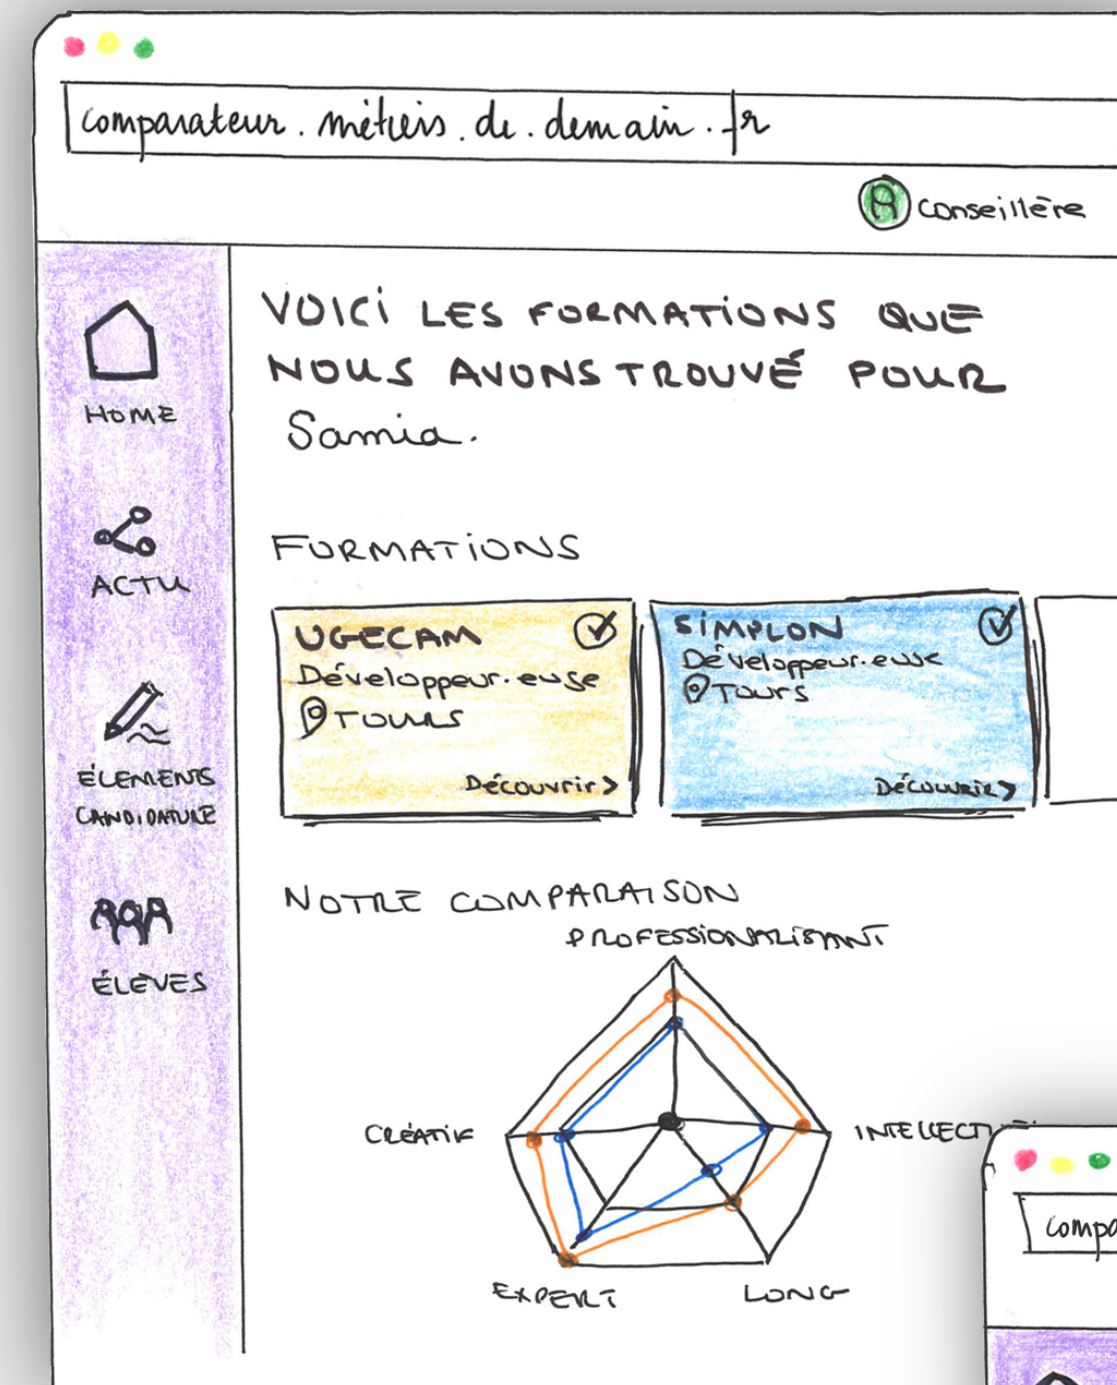 comparateur.métiers.de.demain.fr
A Conseillère
HOME
ACTU
ÉLEMENTS
CANDIDATURE
ÉLÈVES
VOICI LES FORMATIONS QUE
NOUS AVONS TROUVÉ POUR
Samia.
FORMATIONS
UGECAM
Développeur.euse
TOURS
Découvrir >
SIMPLON
Développeur.euse
Tours
Découvrir >
NOTRE COMPARAISON
PROFESSIONNALISANT
CRÉATIF
EXPERT
LONG
compa